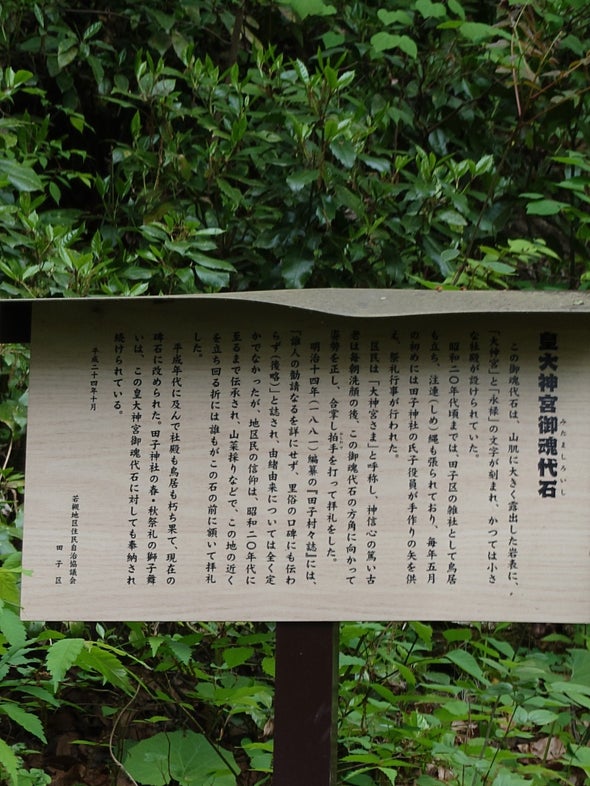 皇大神宮御魂代石
みたましろいし
この御魂代石は、山肌に大きく露出した岩表に、
「大神宮」と「永禄」の文字が刻まれ、かつては小さ
な社殿が設けられていた。
昭和二〇年代頃までは、田子区の雑社として鳥居
も立ち、注連(しめ)縄も張られており、毎年五月
の初めには田子神社の氏子役員が手作りの矢を供
え、祭礼行事が行われた。
区民は「大神宮さま」と呼称し、神信心の篤い古
老は毎朝洗顔の後、この御魂代石の方角に向かって
姿勢を正し、合掌し拍手を打って拝礼をした。
明治十四年(一八八一)編纂の『田子村々誌』には、
「誰人の勧請なるを詳にせず、里俗の口碑にも伝わ
らず(後略)」と誌され、由緒由来については全く定
かでなかったが、地区民の信仰は、昭和二〇年代に
至るまで伝承され、山菜採りなどで、この地の近く
を立ち回る折には誰もがこの石の前に額いて拝礼
した。
平成年代に及んで社殿も鳥居も朽ち果て、現在の
碑石に改められた。田子神社の春・秋祭礼の獅子舞
いは、この皇大神宮御魂代石に対しても奉納され
続けられている。
平成二十四年十月
若槻地区住民自治協議会
田子区